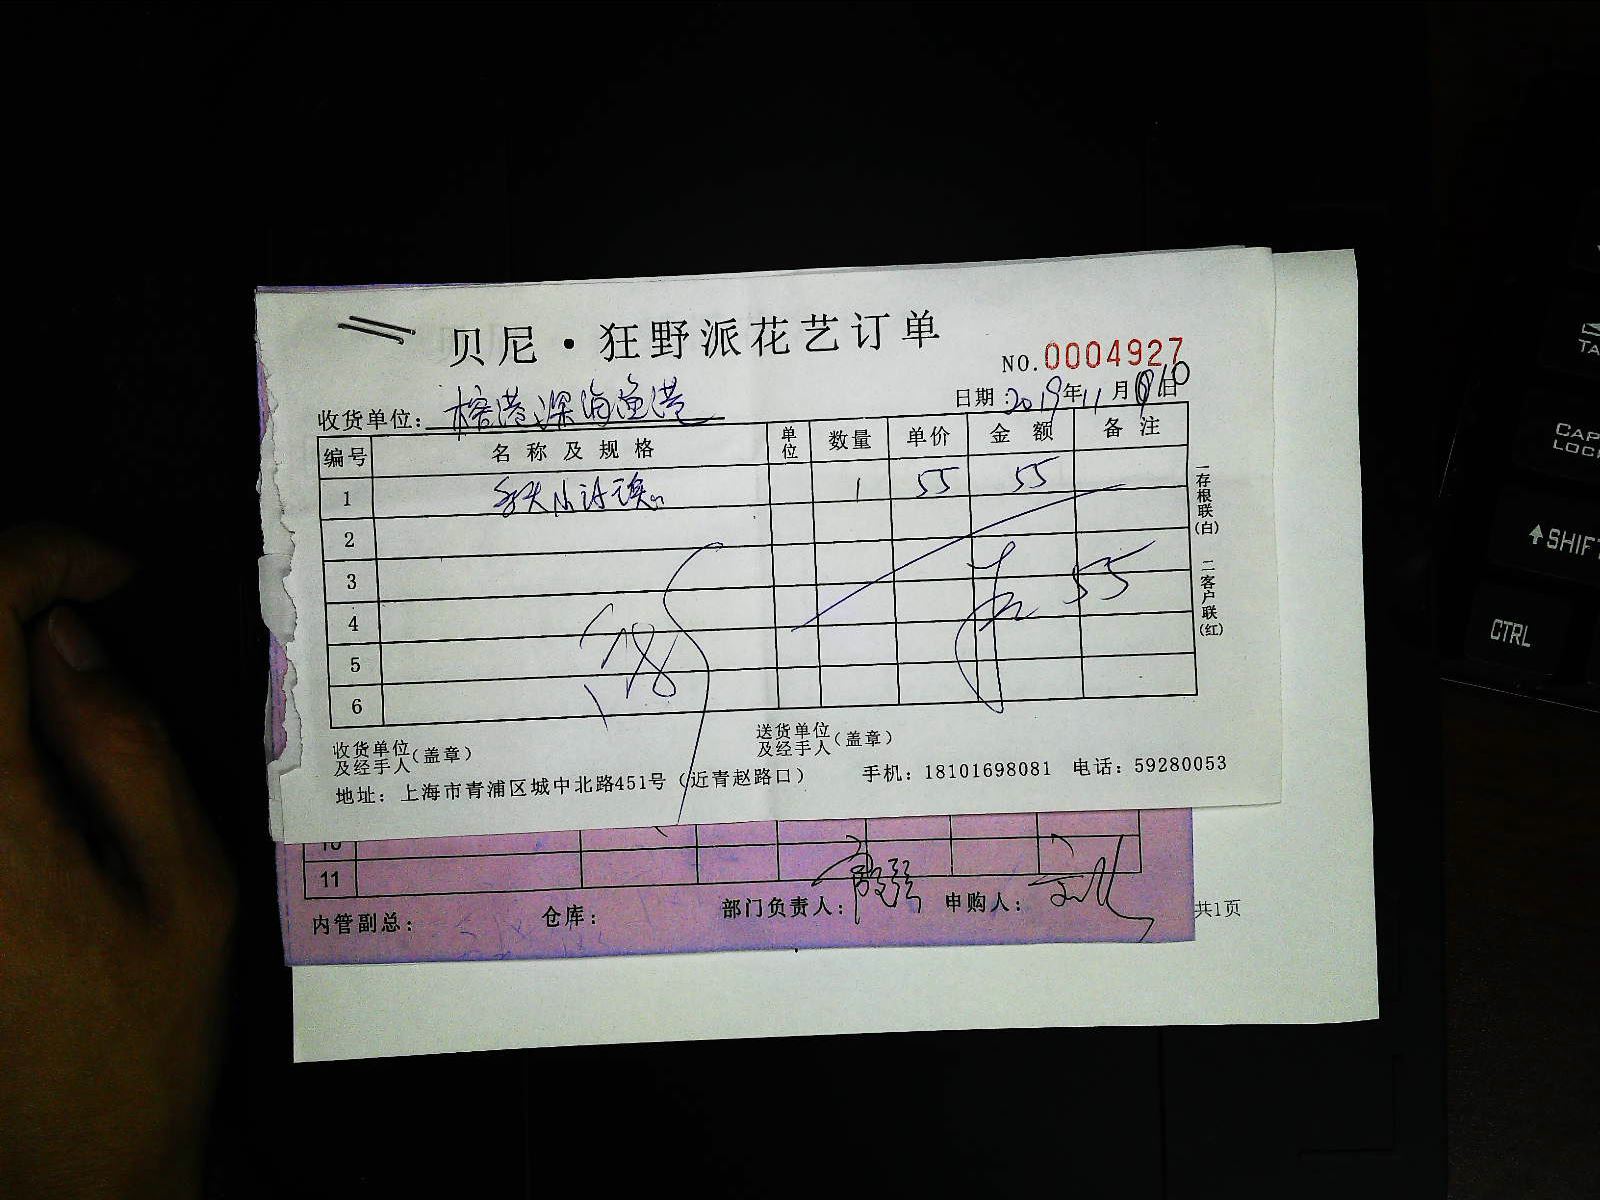 贝尼·狂野派花艺订单
NO.0004927
收货单位：榕港深海渔港
日期：2019年11月10日
编号 名称及规格 单位 数量 单价 金额 备注
1 1 55 55
2
3
4
5
6
55
一存根联(白) 二客户联(红)
收货单位及经手人(盖章)
送货单位及经手人(盖章)
地址：上海市青浦区城中北路451号（近青赵路口） 手机：18101698081 电话：59280053
10
11
内管副总： 仓库： 部门负责人： 申购人：
共1页
TA
CAP
LOC
SHIF
CTRL